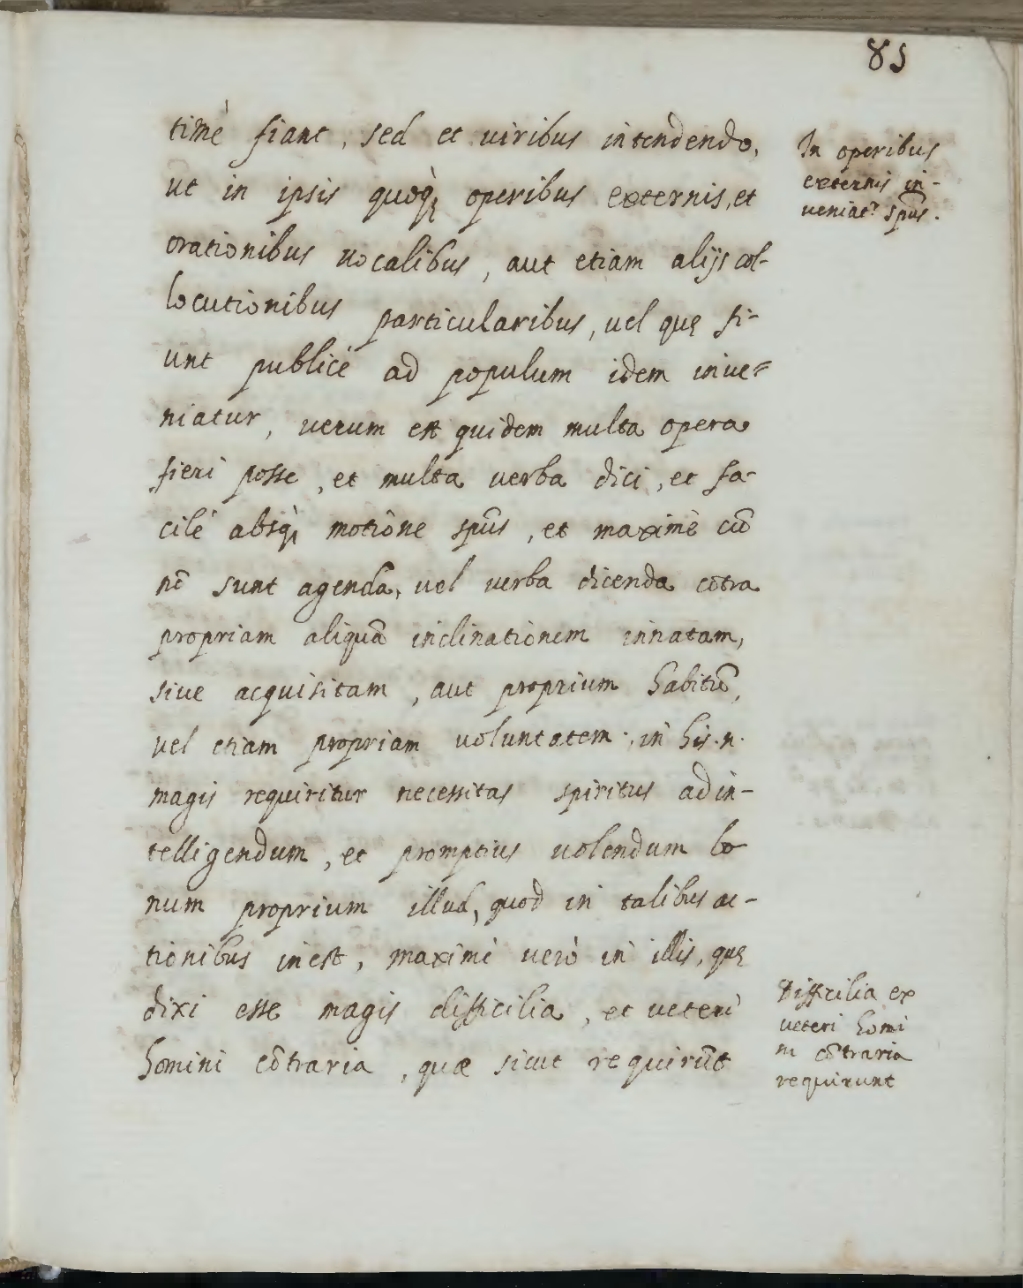 85
timè fiant, sed et viribus intendendo,
ut in ipsis quoq; operibus externis, et
orationibus vocalibus, aut etiam alijs col-
locutionibus particularibus, vel quę fi-
unt publicè ad populum idem inve-
niatur, verum est quidem multa opera
fieri posse, et multa verba dici, et fa-
cilè absq; motione spũs, et maximè cũ
nõ sunt agenda, vel verba dicenda cõtra
propriam aliquã inclinationem innatam,
sive acquisitam, aut proprium habitũ,
vel etiam propriam voluntatem, in his .n.
magis requiritur necessitas spiritus ad in-
telligendum, et promptius volendum bo
num proprium illud, quod in talibus ac-
tionibus inest, maximè verò in illis, quę
dixi esse magis difficilia, et veteri
homini cõtraria, quæ sicut requirũt
In operibus
externis in-
veniat.r spũs.
Difficilia ex
veteri homi
ni cõtraria
requirunt